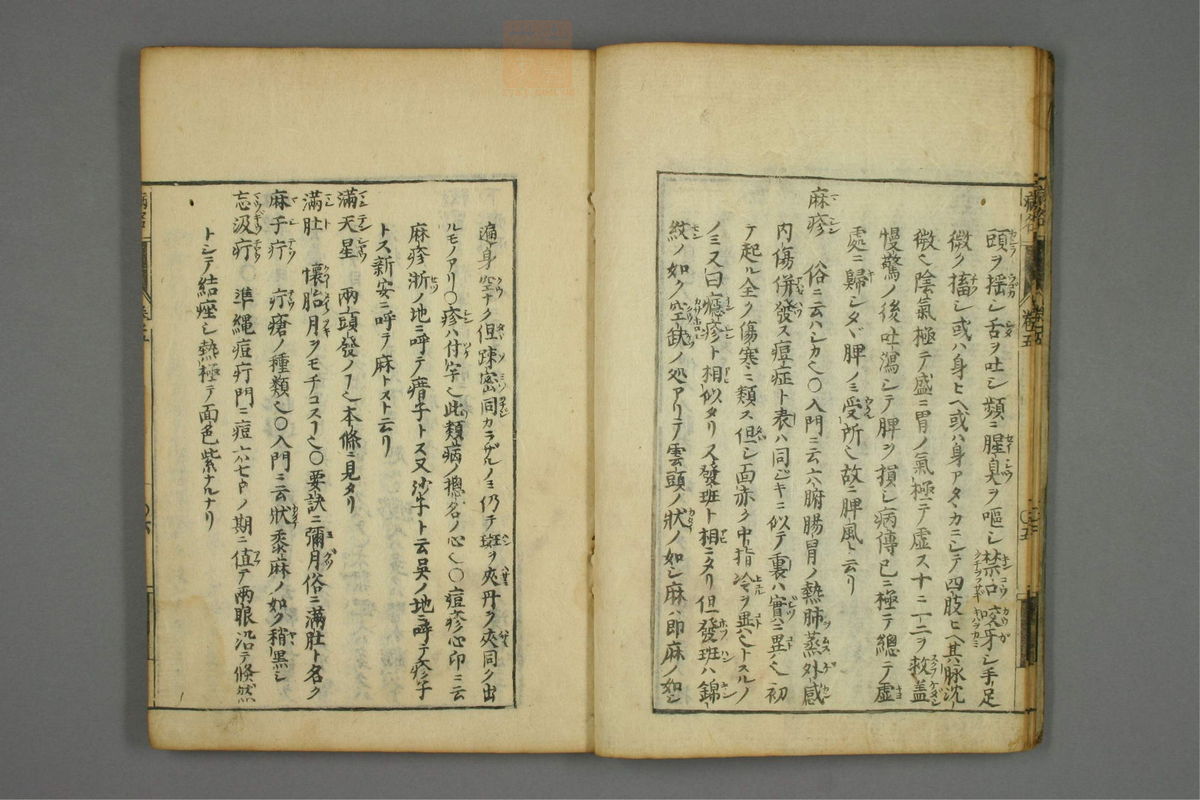 頭ヲ揺シ舌ヲ吐シ頻ニ腥臭ヲ嘔シ禁口咬牙シ手足
微ク搐シ或ハ身ヒヘ或ハ身アタヽカニシテ四肢ヒヘ其脉沈
微也陰氣極テ盛ニ胃ノ氣極テ虚ス十ニ一二ヲ救盖
慢驚ノ後吐瀉シテ脾ヲ損シ病傳已ニ極テ總テ虚
處ニ歸シタヾ脾ノミ受所也故ニ脾風ト云リ
麻疹 俗ニ云ハシカ也〇入門ニ云六腑腸胃ノ熱肺蒸外感
内傷併發ス痘症ト表ハ同ジキニ似テ裏ハ實ニ異也初
テ起ル全ク傷寒ニ類ス但シ面赤ク中指冷ヲ異也トスルノ
ノミス曰癮疹ト相似タリス發班ト相ニタリ但發班ハ錦
紋ノ如ク空缺ノ処アリテ雲頭ノ状ノ如シ麻ハ即麻ノ如シ
遍身空ナク但踈密同カラザルノミ仍チ班ヲ夾丹ヲ夾同ク出
ルモノアリ〇疹ハ付字也此類病ノ摠名ノ心也〇痘疹心印ニ云
麻疹浙ノ地ニ呼テ㾱子トス又沙子ト云吳ノ地ニ呼テ疹子
トス新安ニ呼テ麻トスト云リ
滿天星 兩頭發ノ┐也本條ニ見タリ
滿肚 懷胎月ヲモチコス┐也〇要訣ニ彌月俗ニ滿肚ト名ク
麻子疔 疔瘡ノ種類也〇入門ニ云狀黍麻ノ如ク稍黑シ
忘汲疔〇準繩痘疔門ニ痘六七日ノ期ニ値テ兩眼沿テ倏然
トシテ結痤シ熱極テ面色紫ナルナリ
病名
卷五
〇五
病名
卷五
〇六